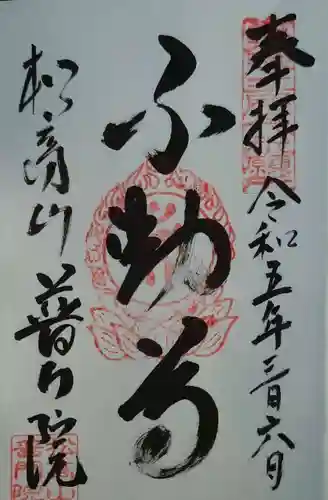 奉拝
令和五年三月六日
不動尊
松高山
普門院